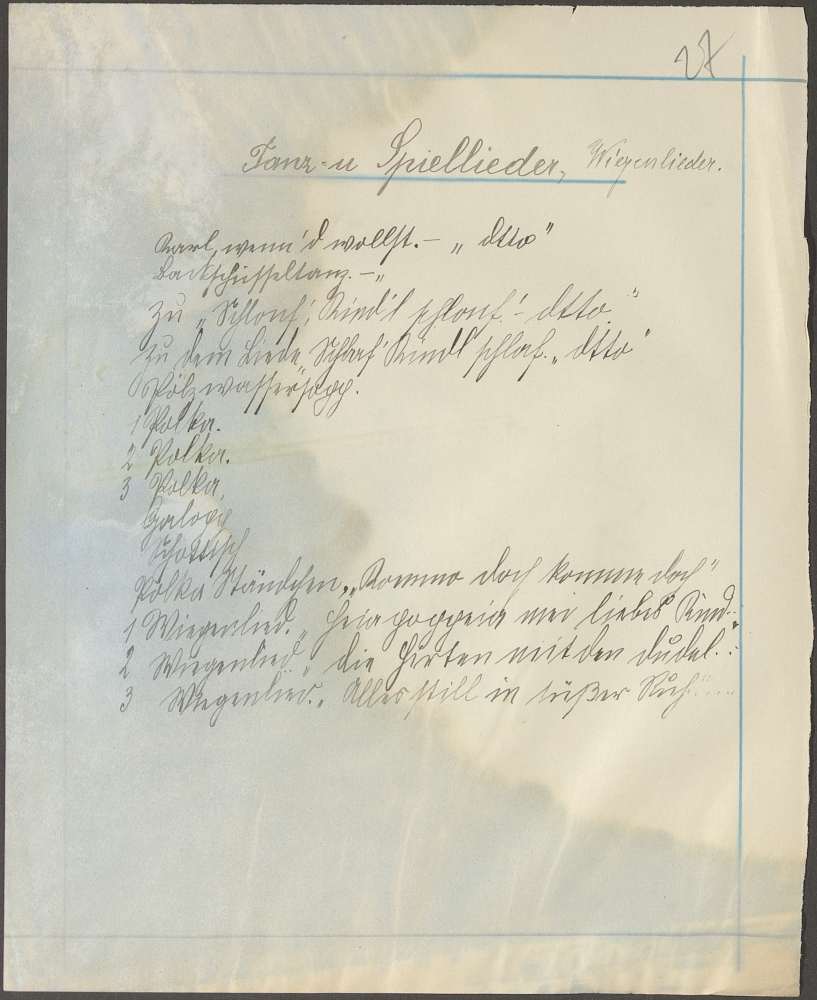 27
Tanz- u Spiellieder, Wiegenlieder.
Karl, wenn'd wollst. – „ dtto"
Backschüsseltanz. – „
Zu „Schlouf', Kind'l schlouf'! – dtto "
Zu dem Liede „Schlaf' Kindl schlaf. „ dtto "
1 Polka.
2 Polka.
3 Polka.
Galopp
Schottisch
Polka Ständchen, „Komme doch komme doch"
1 Wiegenlied. „Heia poppeia mei liebes Kind..."
2 Wiegenlied „ die Hirten mit den Dudel..
3 Wiegenlied. „ Alles still in süßer Ruh"....